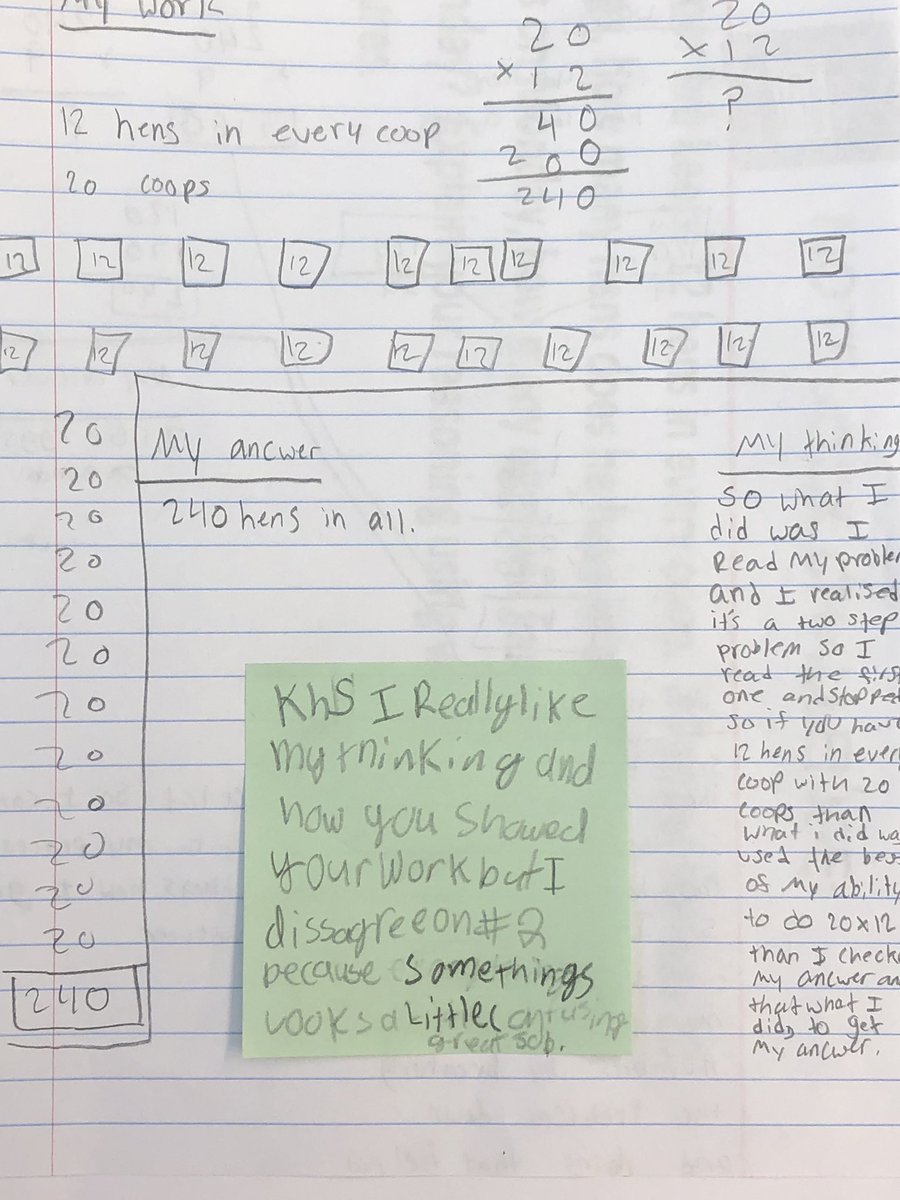 My work
20
×12
40
200
240
20
×12
?
12 hens in every coop
20 coops
12 12 12 12 12 12 12 12 12 12
12 12 12 12 12 12 12 12 12 12
20
20
20
20
20
20
20
20
20
20
20
20
240
My ancwer
240 hens in all.
My thinking
So what I
did was I
Read My problem
and I realised
it's a two step
problem so I
read the first
one and stopped
so if you have
12 hens in every
coop with 20
coops than
what i did was
used the best
of My ability
to do 20x12
than I checked
my ancwer an
that what I
did, to get
My ancwer.
KhS I Really like
my thinking and
how you showed
your work but I
dissagree on #2
because somethings
Looks a Little confusing
great Job.